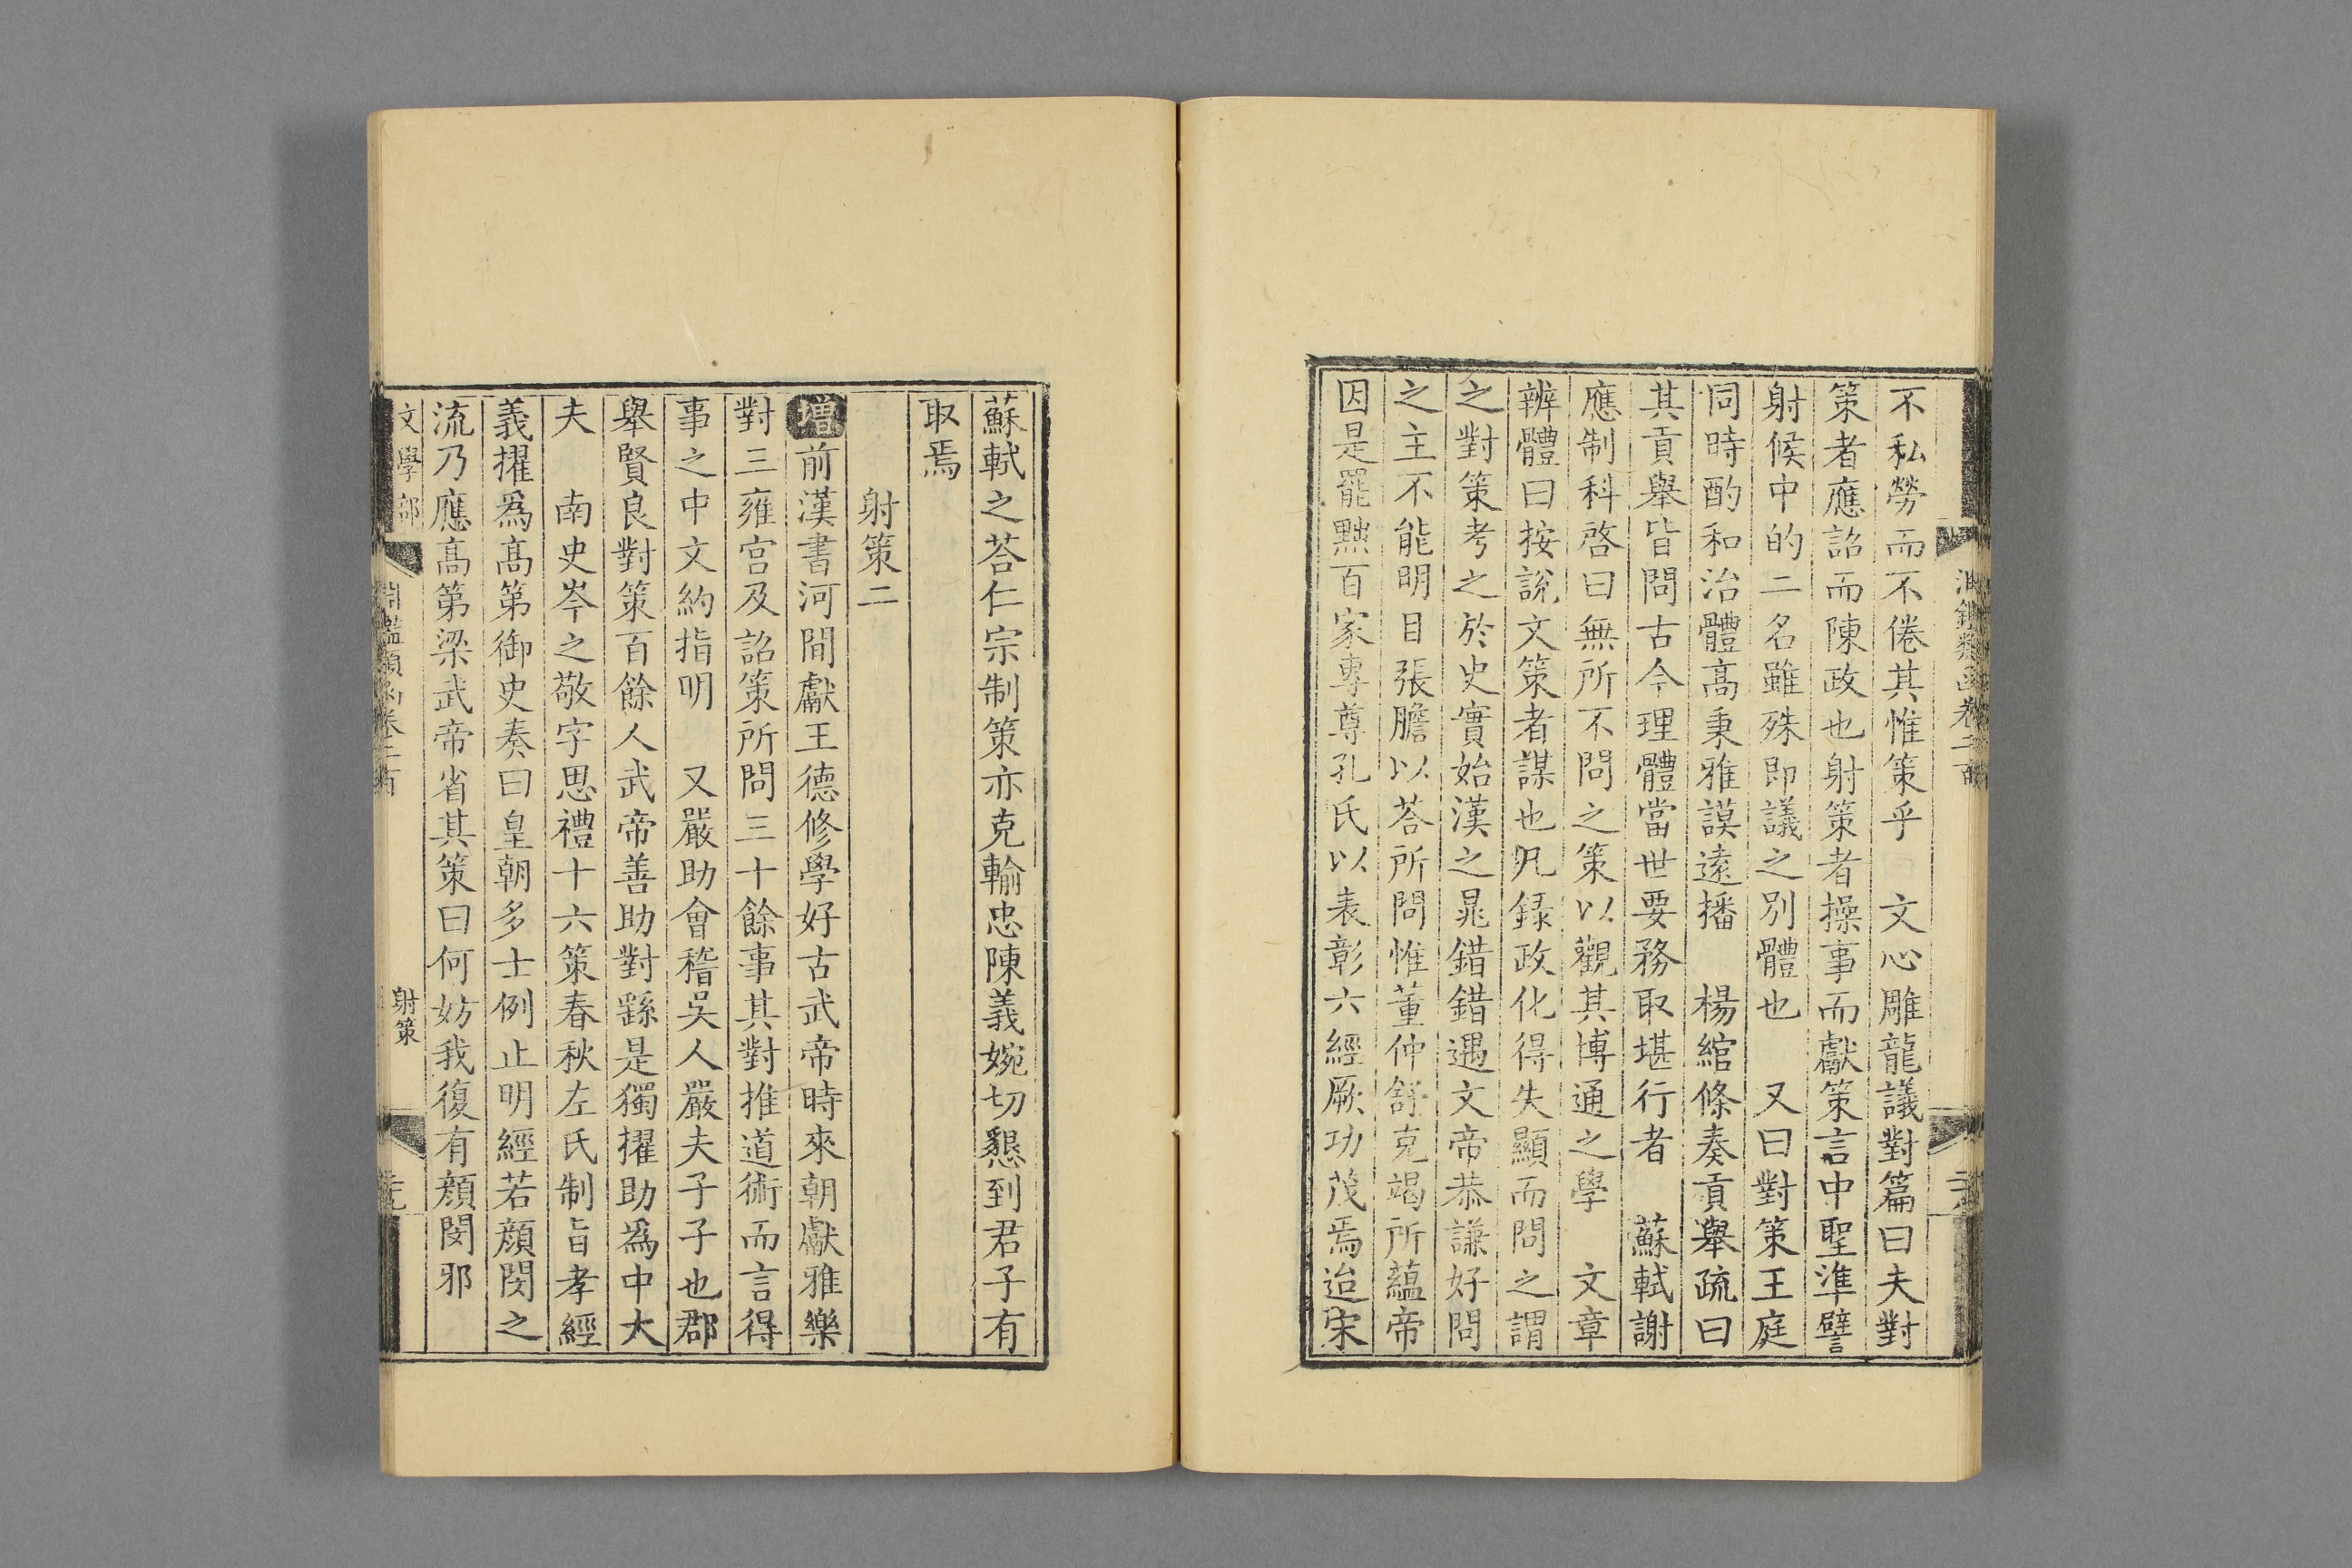 淵鑑類函卷二百
不私勞而不倦其惟策乎　文心雕龍議對篇曰夫對
策者應詔而陳政也射策者操事而獻策言中聖準譬
射候中的二名雖殊即議之別體也　又曰對策王庭
同時酌和治體高秉雅謨遠播　楊綰條奏貢舉疏曰
其貢舉皆問古今理體當世要務取堪行者　蘇軾謝
應制科啓曰無所不問之策以觀其博通之學　文章
辨體曰按說文策者謀也凡錄政化得失顯而問之謂
之對策考之於史實始漢之晁錯錯遇文帝恭謙好問
之主不能明目張膽以荅所問惟董仲舒克竭所蘊帝
因是罷黜百家專尊孔氏以表彰六經厥功茂焉迨宋
蘇軾之荅仁宗制策亦克輸忠陳義婉切懇到君子有
取焉
射策二
增前漢書河間獻王德修學好古武帝時來朝獻雅樂
對三雍宮及詔策所問三十餘事其對推道術而言得
事之中文約指明　又嚴助會稽吳人嚴夫子子也郡
舉賢良對策百餘人武帝善助對繇是獨擢助爲中大
夫　南史岑之敬字思禮十六策春秋左氏制旨孝經
義擢爲高第御史奏曰皇朝多士例止明經若顔閔之
流乃應高第梁武帝省其策曰何妨我復有顔閔邪
文學部
淵鑑類函卷二百
射策